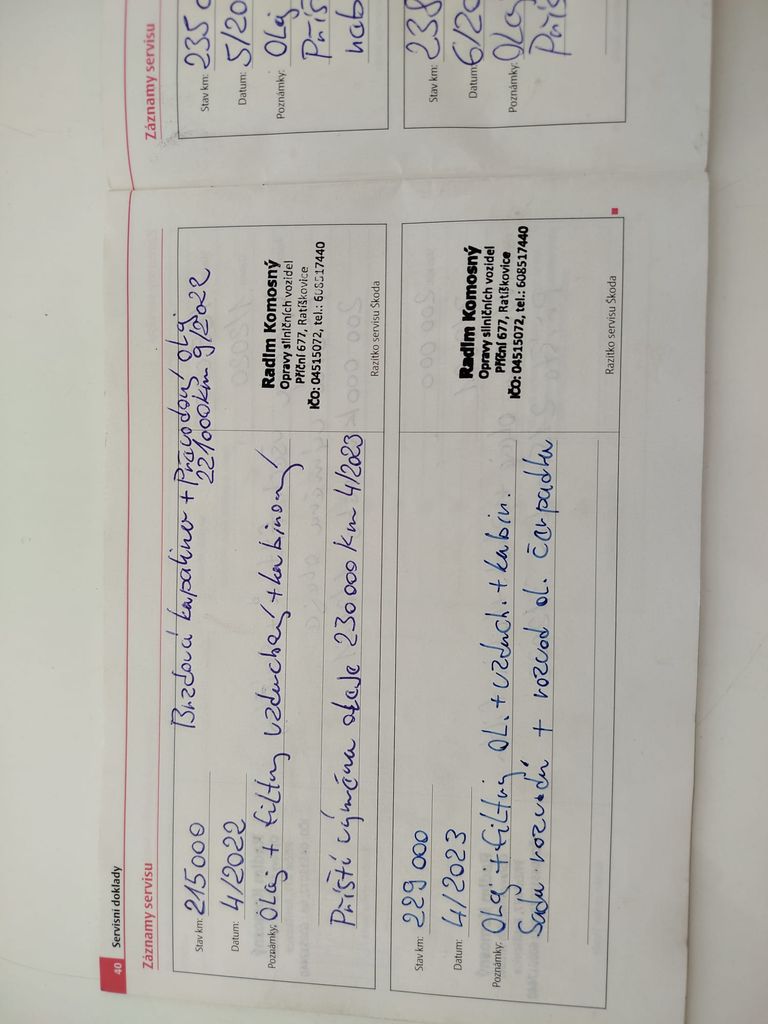 40 Servisní doklady
Záznamy servisu
Stav km: 215000
Datum: 4/2022
Brzdová kapalina + Převodový olej
221000km 9/2022
Poznámky: Olej + filtry vzduchový + kabinový
Příští výměna oleje 230 000 km 4/2023
Radim Komosný
Opravy silničních vozidel
Příční 677, Ratíškovice
IČO: 04515072, tel.: 608517440
Razítko servisu Škoda
Stav km: 229 000
Datum: 4/2023
Poznámky: Olej + filtry ol. + vzduch. + kabin.
Sada rozvodů + rozvod ol. čerpadla
Radim Komosný
Opravy silničních vozidel
Příční 677, Ratíškovice
IČO: 04515072, tel.: 608517440
Razítko servisu Škoda
Záznamy servisu
Stav km: 235
Datum: 5/20
Poznámky: Olej
Příš
Stav km: 238
Datum: 6/20
Poznámky: Olej
Příš